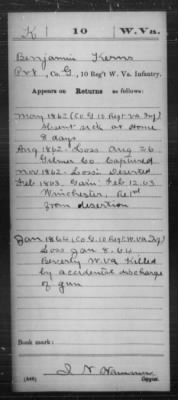 K | 10 | W.Va.
Benjamin Kerns
Pvt, Co. G, 10 Reg't W. Va. Infantry.
Appears on Returns as follows:
May 1862 (Co G. 10 Regt. Va Inf)
Absent sick at Home
8 days
Aug 1862. Loss Aug 26
Gilmer Co. Captured
Nov 1862. Loss. Deserted
Feb 1863. Gain. Feb 12.63
Winchester, Ret'd
from desertion
Jan 1864 (Co G. 10 Regt. W. VA Inf)
Loss Jan 8. 64
Beverly W. VA Killed
by accidental discharge
of gun
Book mark:
(546)
J. N.
Copyist.